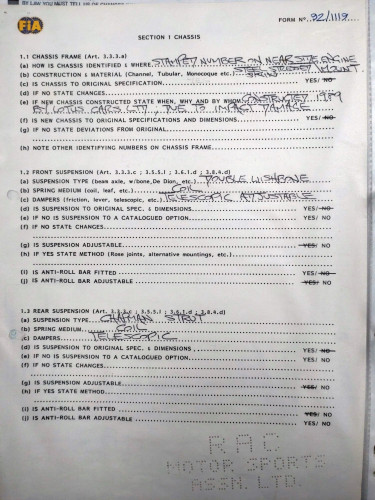 BY LAW YOU MUST TELL US OF
FIA
FORM Nº. 92/1119
SECTION 1 CHASSIS
1.1 CHASSIS FRAME (Art. 3.3.3.a)
(a) HOW IS CHASSIS IDENTIFIED & WHERE. STAMPED NUMBER ON NEAR SIDE ENGINE
MOUNT
(b) CONSTRUCTION & MATERIAL (Channel, Tubular, Monocoque etc.)
(c) IS CHASSIS TO ORIGINAL SPECIFICATION YES/ NO
(d) IF NO STATE CHANGES
(e) IF NEW CHASSIS CONSTRUCTED STATE WHEN, WHY AND BY WHOM CONSTRUCTED 1989
BY LOTUS CARS LTD, DUE TO IMPACT DAMAGE
(f) IS NEW CHASSIS TO ORIGINAL SPECIFICATIONS AND DIMENSIONS YES/ NO
(g) IF NO STATE DEVIATIONS FROM ORIGINAL
(h) NOTE OTHER IDENTIFYING NUMBERS ON CHASSIS FRAME
1.2 FRONT SUSPENSION (Art. 3.3.3.c ; 3.5.5.1 ; 3.6.1.d ; 3.8.4.d)
(a) SUSPENSION TYPE (beam axle, w/bone, De Dion, etc.) DOUBLE WISHBONE
(b) SPRING MEDIUM (coil, leaf, etc.) COIL
(c) DAMPERS (friction, lever, telescopic, etc.) TELESCOPIC ADJUSTABLE
(d) IS SUSPENSION TO ORIGINAL SPEC. & DIMENSIONS YES/ NO
(e) IF NO IS SUSPENSION TO A CATALOGUED OPTION YES/ NO
(f) IF NO STATE CHANGES
(g) IS SUSPENSION ADJUSTABLE YES/ NO
(h) IF YES STATE METHOD (Rose joints, alternative mountings, etc.)
(i) IS ANTI-ROLL BAR FITTED YES/ NO
(j) IS ANTI-ROLL BAR ADJUSTABLE YES/ NO
1.3 REAR SUSPENSION (Art. 3.3.3.c ; 3.5.5.1 ; 3.6.1.d ; 3.8.4.d)
(a) SUSPENSION TYPE CHAPMAN STRUT
(b) SPRING MEDIUM COIL
(c) DAMPERS TELESCOPIC
(d) IS SUSPENSION TO ORIGINAL SPEC. & DIMENSIONS YES/ NO
(e) IF NO IS SUSPENSION TO A CATALOGUED OPTION YES/ NO
(f) IF NO STATE CHANGES
(g) IS SUSPENSION ADJUSTABLE YES/ NO
(h) IF YES STATE METHOD
(i) IS ANTI-ROLL BAR FITTED YES/ NO
(j) IS ANTI-ROLL BAR ADJUSTABLE YES/ NO
RAC
MOTOR SPORTS
ASSN. LTD.